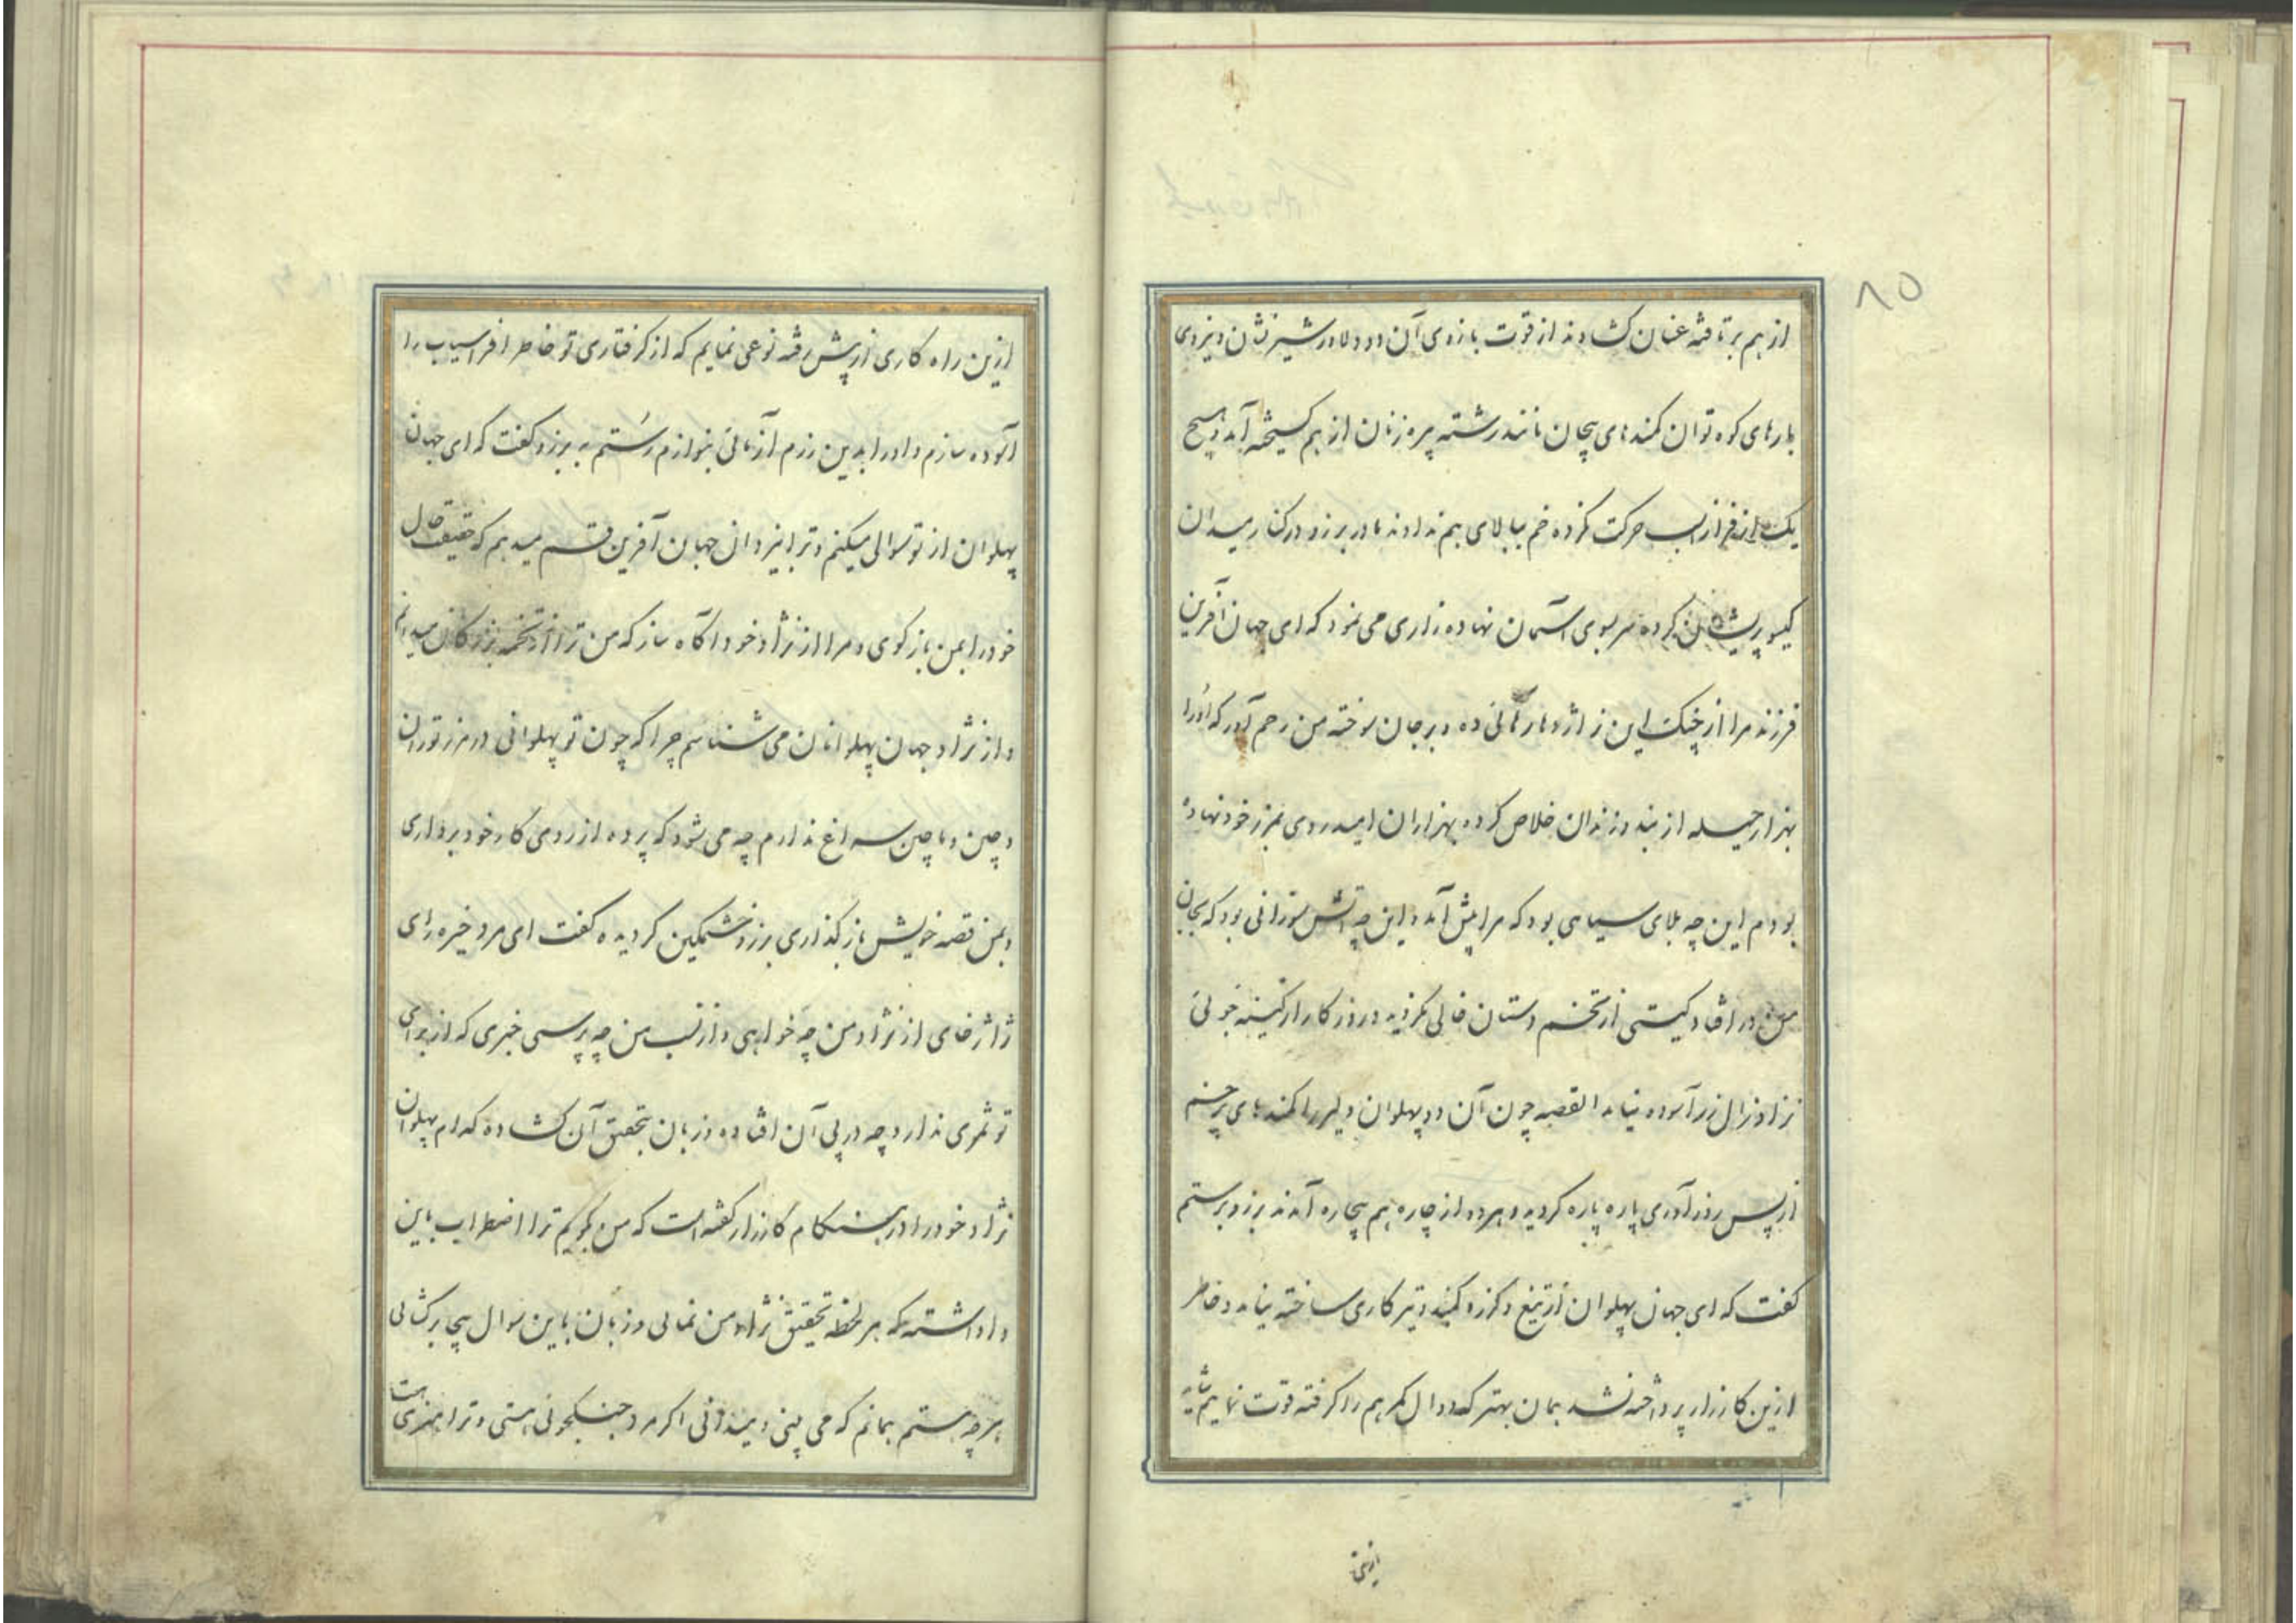 ۸۵
از هم برتافته عنان کشادند از قوت بازوی آن دو دلاور شیر نشان و نیروی
بارهای کوه توان کمندهای پیچان مانند رشته پیره زنان از هم کسیخته آمد و هیچ
یک از فراز اسب حرکت نکرده خم ببالای هم ندادند مادر برزو در کنار میدان
کیسو پریشان کرده سر بسوی آسمان نهاده زاری می نمود که ای جهان آفرین
فرزند مرا از چنک این نر اژدها رهائی ده و بر جان سوخته من رحم آور که او را
بهزار حیله از بند و زندان خلاص کرده بهزاران امید روی بمرز خود نهاده
بودم این چه بلای سیاهی بود که مرا پیش آمد و این چه آتش سوزانی بود که بجان
من در افتاد کیتی از تخم دستان خالی نکردید و روزکار از کینه جوئی
نژاد زال زر آسوده نیامد القصه چون آن دو پهلوان دلیر را کمندهای پر خم
از پس زور آوری پاره پاره کردید و هر دو از چاره هم بیچاره آمدند برزو برستم
کفت که ای جهان پهلوان از تیغ و کرز و کمند و تیر کاری ساخته نیامد و خاطر
ازین کارزار پرداخته نشد همان بهتر که دوال کمر هم را کرفته قوت نمایم شاید
ازین راه کاری از پیش رفته نوعی نمایم که از کرفتاری تو خاطر افراسیاب را
آسوده سازم و او را بدین رزم آزمائی بنوازم رستم به برزو کفت که ای جهان
پهلوان از تو سوالی میکنم و ترا بیزدان جهان آفرین قسم میدهم که حقیقت حال
خود را بمن باز کوی و مرا از نژاد خود آکاه ساز که من ترا از تخمه بزرکان میدانم
و از نژاد جهان پهلوانان می شناسم چرا که چون تو پهلوانی در مرز توران
و چین و ماچین سراغ ندارم چه می شود که پرده از روی کار خود برداری
و بمن قصه خویش باز کذاری برزو خشمکین کردیده کفت ای مرد خیره رای
ژاژ خای از نژاد من چه خواهی و از نسب من چه پرسی خبری که از برای
تو ثمری ندارد چه در پی آن افتاده و زبان بتحقیق آن کشاده کدام پهلوان
نژاد خود را در هنکام کارزار کفته است که من بکویم ترا اضطراب باین
وا داشته که هر لحظه تحقیق نژاد من نمائی و زبان باین سوال بیجا برکشائی
هر چه هستم همانم که می بینی و میدانی اکر مرد جنکجوئی هستی و ترا هنری هست